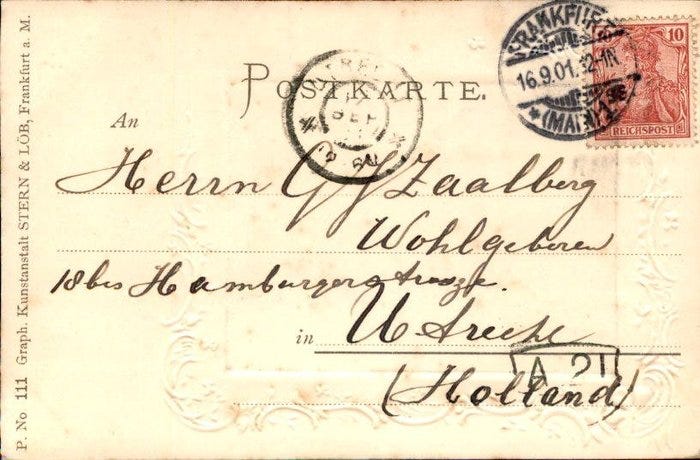 POSTKARTE.
FRANKFURT
16.9.01. 12-1N
* (MAIN) 1 *
10
REICHSPOST
UTRECHT
SEP
An
Herrn G J Zaalberg
Wohlgeboren
18bis Hamburgerstrasze.
in Utrecht
A 21
(Holland)
P. No 111 Graph. Kunstanstalt STERN & LÖB, Frankfurt a. M.